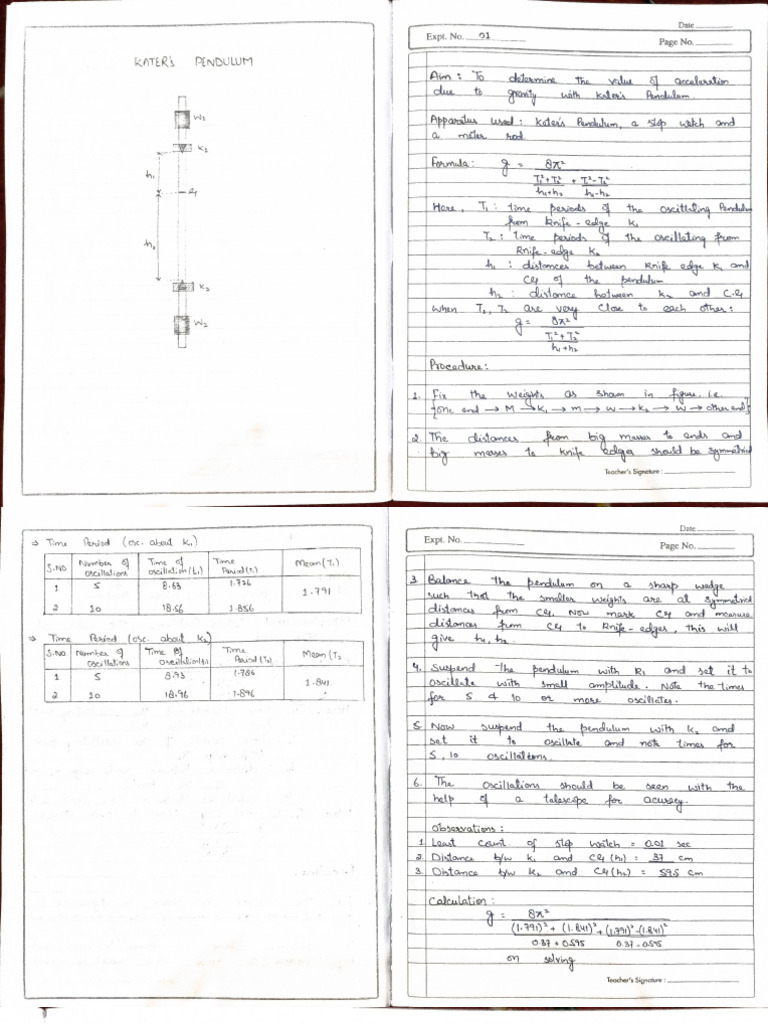 KATER'S PENDULUM
W1
K1
h1
G
h2
K2
W2
Date
Expt. No. 01
Page No.
Aim : To determine the value of acceleration
due to gravity with Kater's Pendulum
Apparatus used : Kater's Pendulum, a stop watch and
a meter rod
Formula : g = 8π²
T1²+T2² + T1²-T2²
h1+h2 h1-h2
Here, T1 : time periods of the oscillating Pendulum
from knife-edge K1
T2 : time periods of the oscillating from
knife-edge K2
h1 : distances between knife edge K1 and
CG of the pendulum
h2 : distance between K2 and C.G
When T1, T2 are very close to each other :
g = 8π²
T1²+T2²
h1+h2
Procedure :
1. Fix the weights as shown in figure. i.e.
[one end → M → K1 → m → w → K2 → W → other end]
2. The distances from big masses to ends and
big masses to knife edges should be symmetrical
Teacher's Signature :
⇒ Time Period (osc. about K1)
S.NO Number of oscillations Time of oscillation (t1) Time Period (T1) Mean (T1)
1 5 8.63 1.726 1.791
2 10 18.56 1.856
⇒ Time Period (osc. about K2)
S.NO Number of oscillations Time of oscillation(t2) Time Period (T2) Mean (T2
1 5 8.93 1.786 1.841
2 10 18.96 1.896
Date
Expt. No.
Page No.
3. Balance the pendulum on a sharp wedge
such that the smaller weights are at symmetrical
distances from CG. Now mark CG and measure
distances from CG to knife-edges, this will
give h1, h2.
4. Suspend the pendulum with K1 and set it to
oscillate with small amplitude. Note the times
for 5 & 10 or more oscillates.
5. Now suspend the pendulum with K2 and
set it to oscillate and note times for
5, 10 oscillations.
6. The oscillations should be seen with the
help of a telescope for acuracy.
Observations :
1. Least count of stop watch = 0.01 sec
2. Distance b/w K1 and CG (h1) = 37 cm
3. Distance b/w K2 and CG (h2) = 59.5 cm
Calculation :
g = 8π²
(1.791)² + (1.841)² + (1.791)² - (1.841)²
0.37 + 0.595 0.37 - 0.595
on solving
Teacher's Signature :